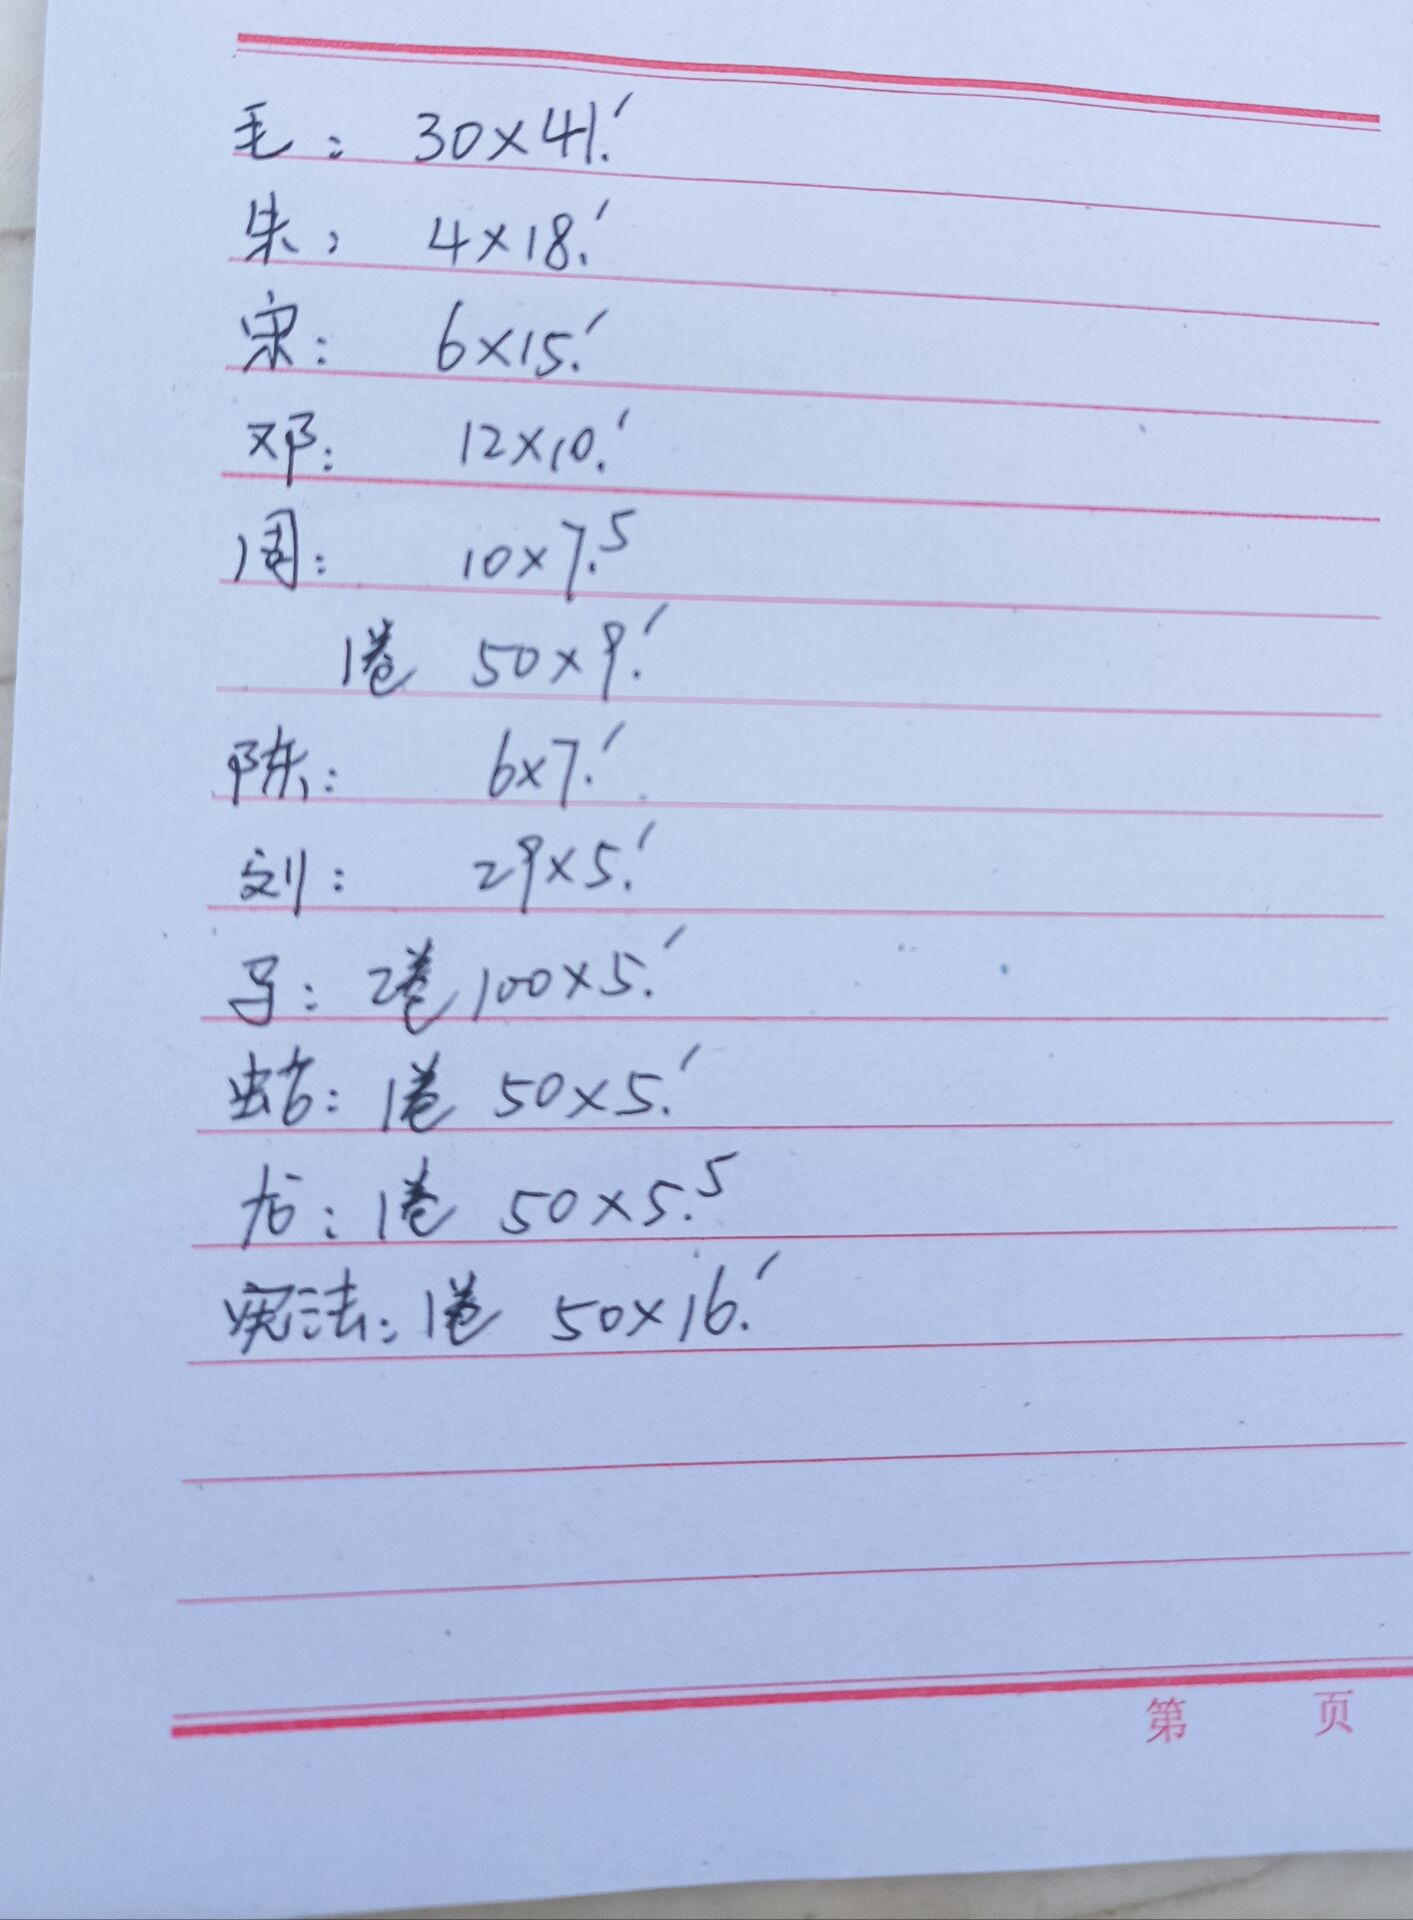 毛： 30×41.′
朱： 4×18.′
宋： 6×15.′
邓： 12×10.′
周： 10×7.5
1卷 50×9.′
陈： 6×7.′
刘： 29×5.′
马： 2卷 100×5.′
蛇： 1卷 50×5.′
龙： 1卷 50×5.5
宪法： 1卷 50×16.′
第 页